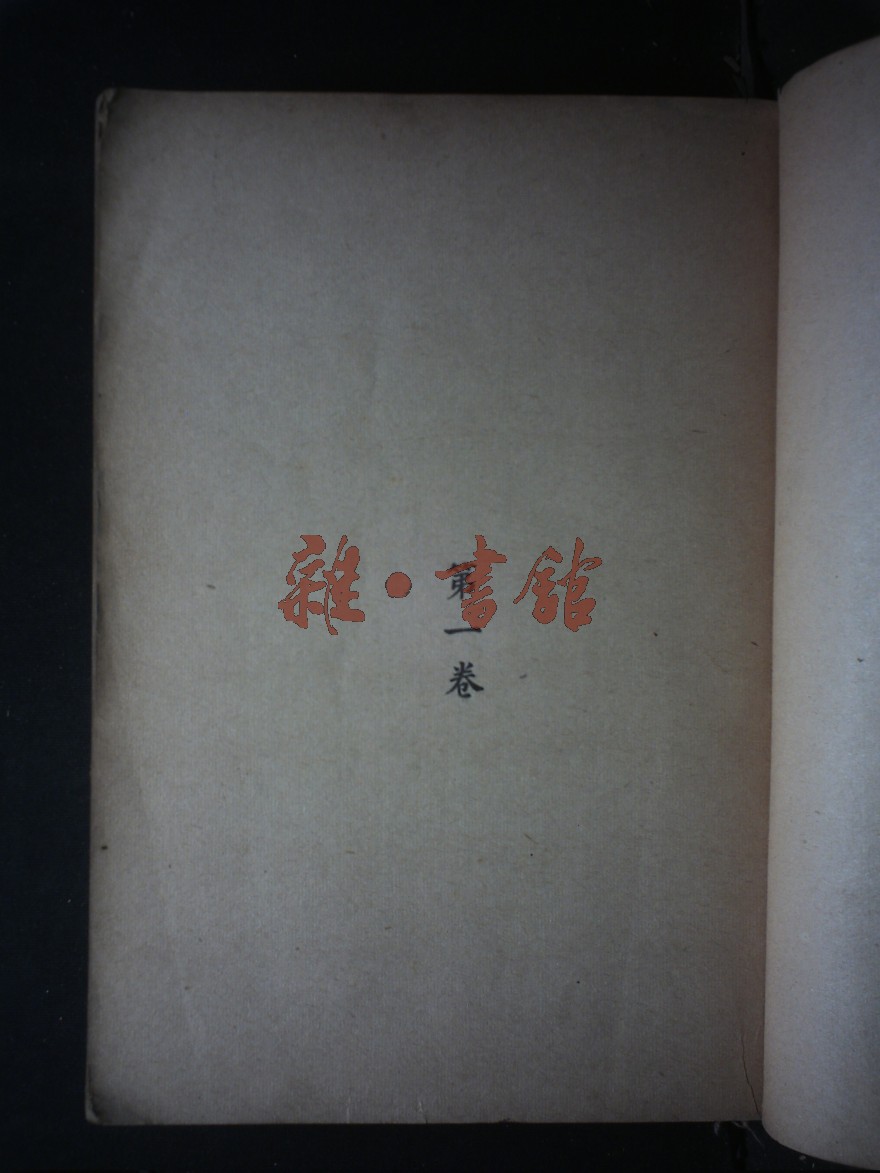 雜·書館
第一卷